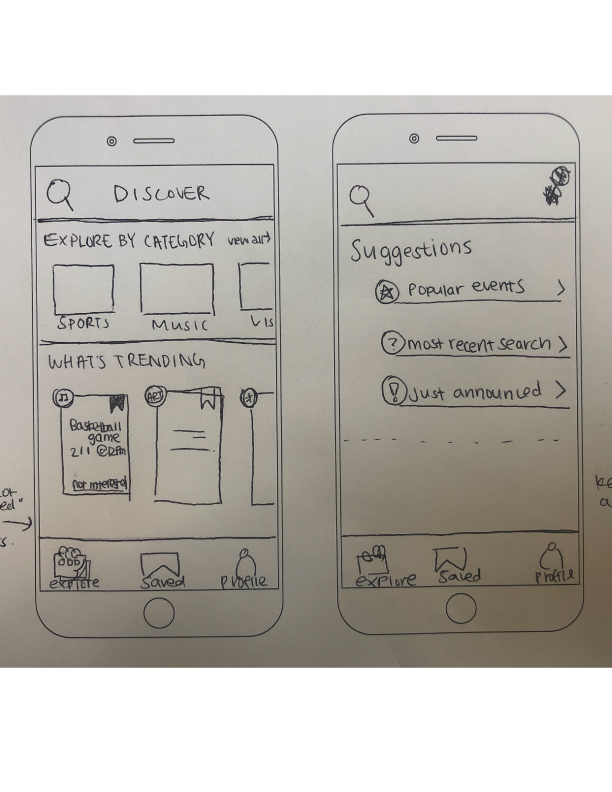 DISCOVER
EXPLORE BY CATEGORY view all
SPORTS
MUSIC
VIS
WHAT'S TRENDING
ART
Basketball
game
211 @12pm
not interested
explore
Saved
profile
Suggestions
Popular events
? most recent search
! Just announced
explore
Saved
profile
or
ed"
s.
ke
a